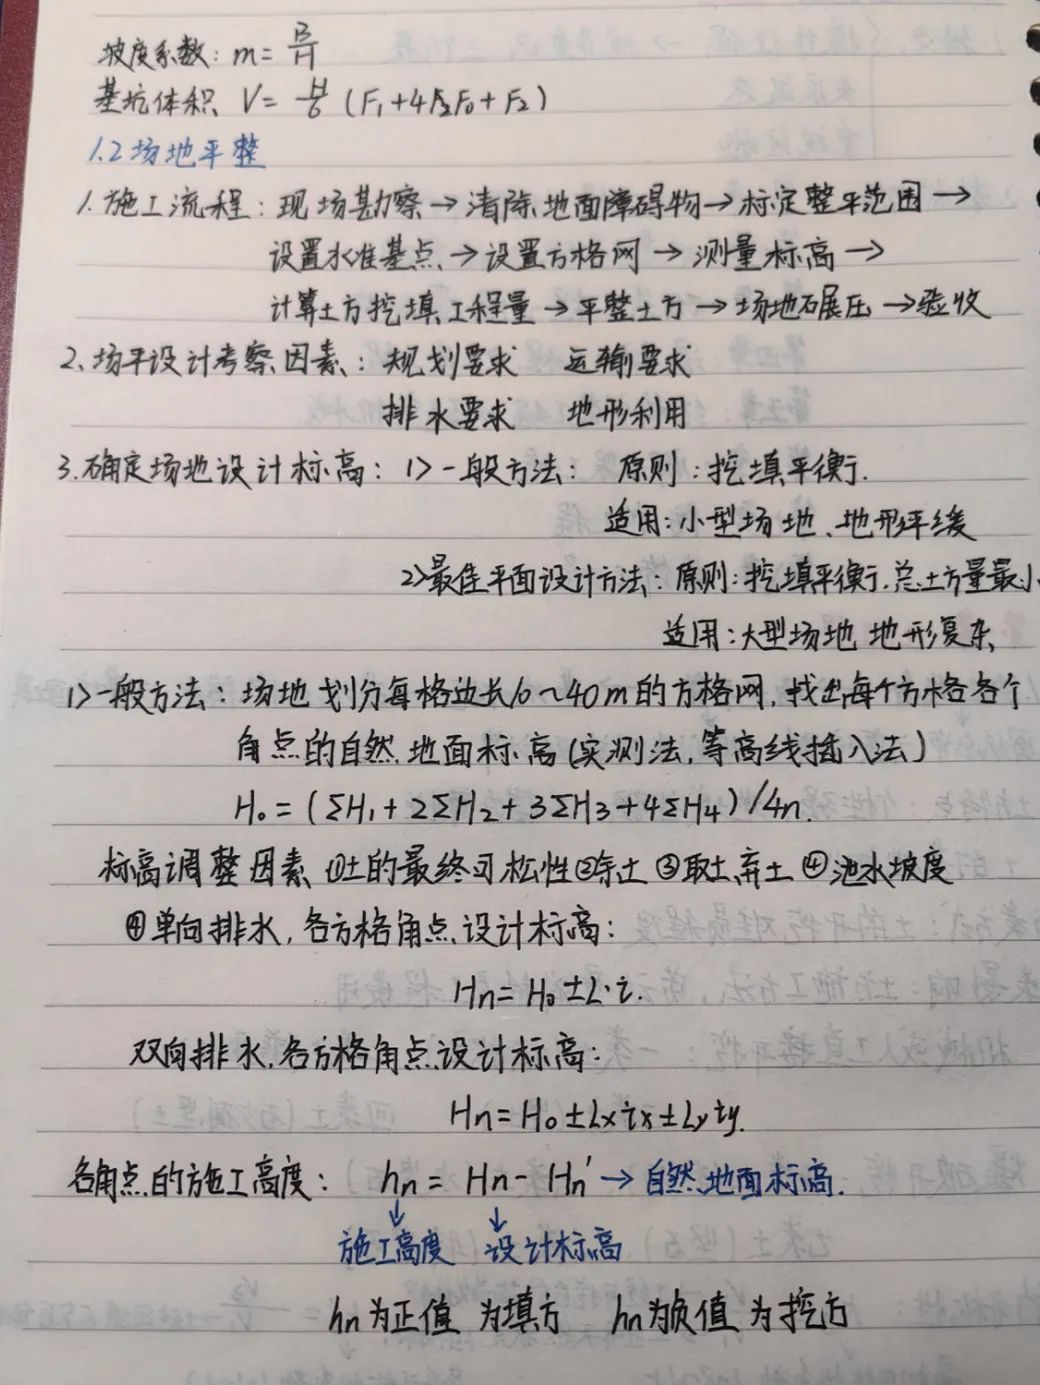 坡度系数: m = B/H
基坑体积 V = H/6 (F₁+4F₀+F₂)
1.2 场地平整
1. 施工流程: 现场勘察 → 清除地面障碍物 → 标定整平范围 →
设置水准基点 → 设置方格网 → 测量标高 →
计算土方挖填工程量 → 平整土方 → 场地碾压 → 验收
2. 场平设计考察因素: 规划要求 运输要求
排水要求 地形利用
3. 确定场地设计标高: 1> 一般方法: 原则: 挖填平衡.
适用: 小型场地、地形平缓
2> 最佳平面设计方法: 原则: 挖填平衡、总土方量最小
适用: 大型场地 地形复杂
1> 一般方法: 场地划分每格边长10~40m的方格网, 找出每个方格各个
角点的自然地面标高(实测法, 等高线插入法)
H₀ = (ΣH₁ + 2ΣH₂ + 3ΣH₃ + 4ΣH₄) / 4n.
标高调整因素 ①土的最终可松性 ② ③取土弃土 ④泄水坡度
④ 单向排水, 各方格角点设计标高:
Hn = H₀ ± L·i.
双向排水, 各方格角点设计标高:
Hn = H₀ ± Lx ix ± Ly iy.
各角点的施工高度: hn = Hn - Hn' → 自然地面标高.
施工高度 设计标高
hn为正值 为填方 hn为负值 为挖方